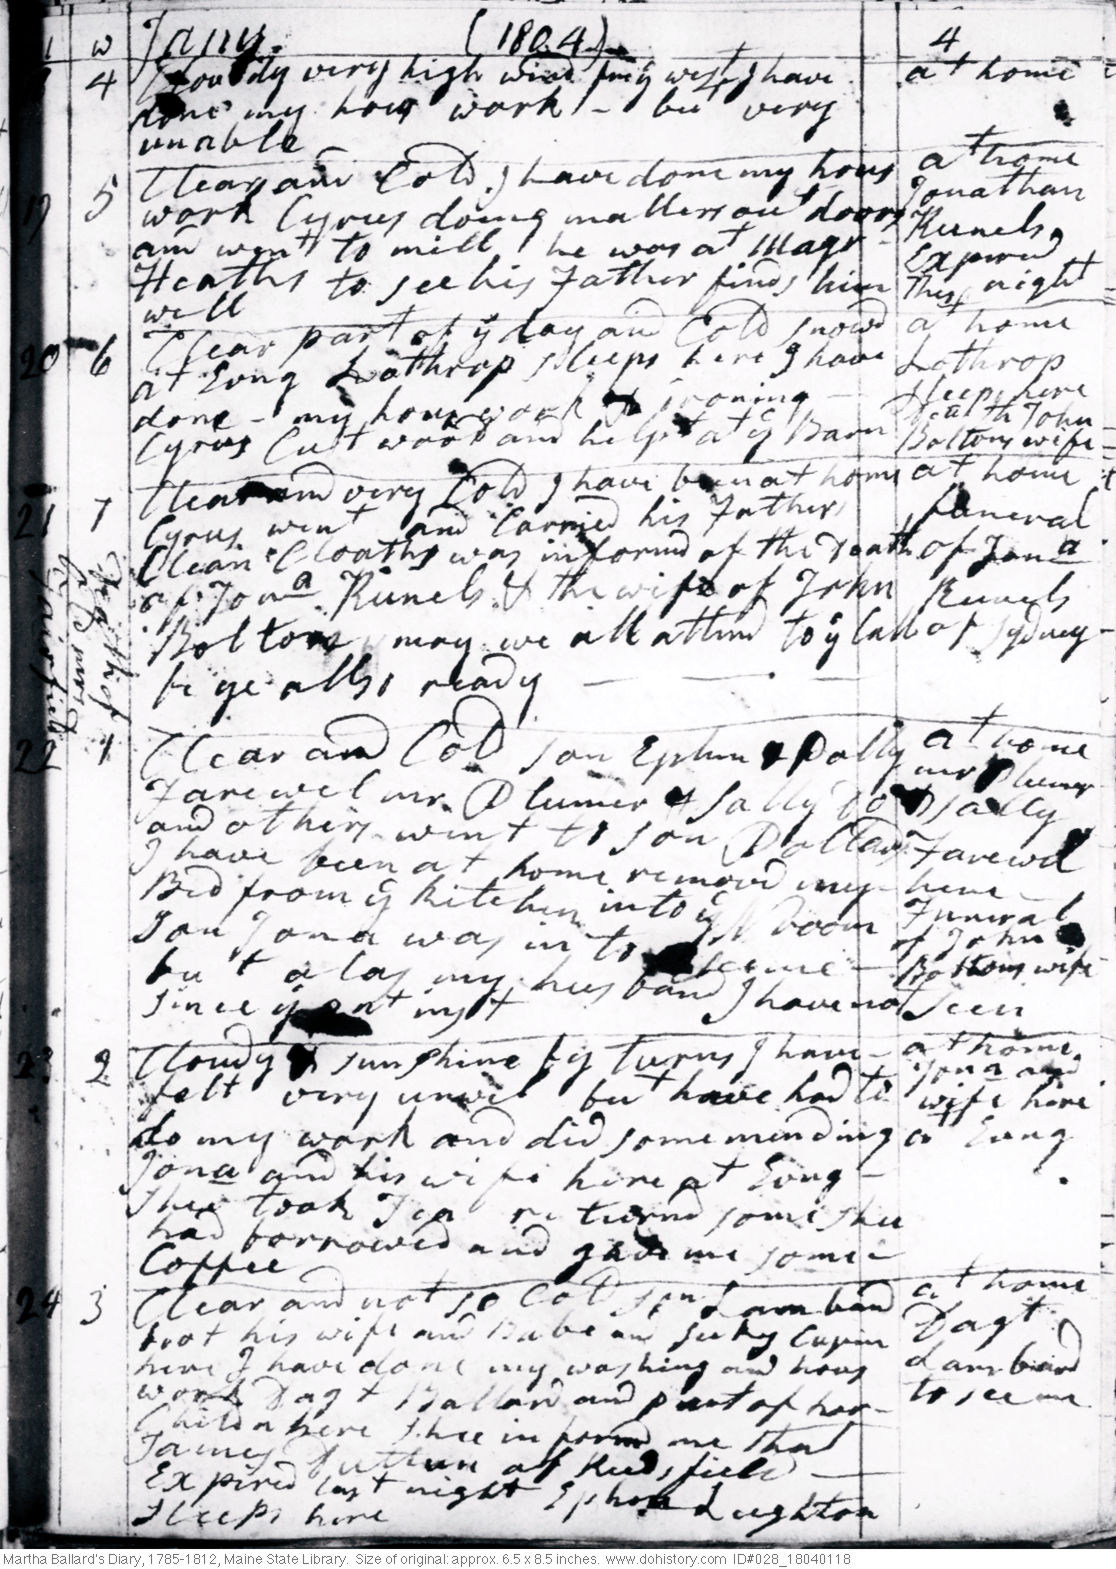 1 w Jany. (1804) 4
4 Cloudy very high wind from ye west I have at home
done my hous work - but very
unable
19 5 Clear and Cold. I have done my hous at home
work Cyrus doing matters out doors Jonathan
and went to mill he was at Magr Runels
Heaths to see his Father finds him Expired
well this night
20 6 Clear part of ye day and Cold snowd at home
at Evng Lothrop sleeps here I have Lothrop
done - my hous work & ironing - sleeps here
Cyrus Cut wood and help at ye Barn Death John
Boltons wife
21 7 Clear and very Cold I have been at home at home
Cyrus went and Carried his Father funeral
Clean Cloaths was informd of the Death of Jona
of Jona Runels & the wife of John Runels
Boltons may we all attend to ye Call of Sydney
be ye allso ready
22 1 Clear and Cold son Ephm & Dolly at home
Farewel mr Plumer & Sally Do mr Plumer
and others went to son Pollards & Sally
I have been at home removd my Farewel
Bed from ye kitchen into ye N room here
Son Jona was in to see me - Funeral
but alas my husband I have not of John
since ye nt inst Boltons wife
seen
23 2 Cloudy & sunshine by turns I have at home
felt very unwel but have had to Jona and
do my work and did some mending wife here
Jona and his wife here at Evng - at Evng
shee took Tea returnd some shee
had borrowed and gave me some
Coffee
24 3 Clear and not so Cold son Lambard at home
brot his wife and Babe and here Dagt
here I have done my washing and hous Lambard
work Dagt Ballard and part of her to see me
Childn here shee informd me that
James Dutton of Readfield
Expired last night Ephm Leighton
sleeps here
Martha Ballard's Diary, 1785-1812, Maine State Library. Size of original: approx. 6.5 x 8.5 inches. www.dohistory.com ID#028_18040118